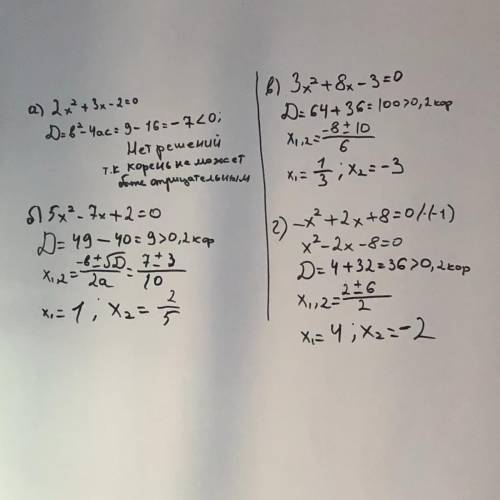 а) 2x² + 3x - 2 = 0
D = в² - 4ac = 9 - 16 = -7 < 0;
Нет решений
т.к корень не может
быть отрицательным
б) 5x² - 7x + 2 = 0
D = 49 - 40 = 9 > 0, 2 кор
x₁,₂ = (-в ± √D)/2a = (7 ± 3)/10
x₁ = 1; x₂ = 2/5
в) 3x² + 8x - 3 = 0
D = 64 + 36 = 100 > 0, 2 кор
x₁,₂ = (-8 ± 10)/6
x₁ = 1/3; x₂ = -3
г) -x² + 2x + 8 = 0 /·(-1)
x² - 2x - 8 = 0
D = 4 + 32 = 36 > 0, 2 кор
x₁,₂ = (2 ± 6)/2
x₁ = 4; x₂ = -2